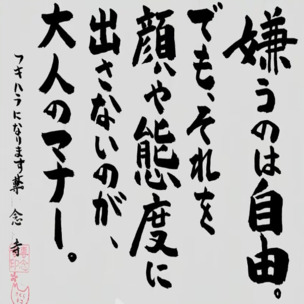 嫌うのは自由。
でも、それを
顔や態度に
出さないのが、
大人のマナー。
フキハラになります 葬念寺